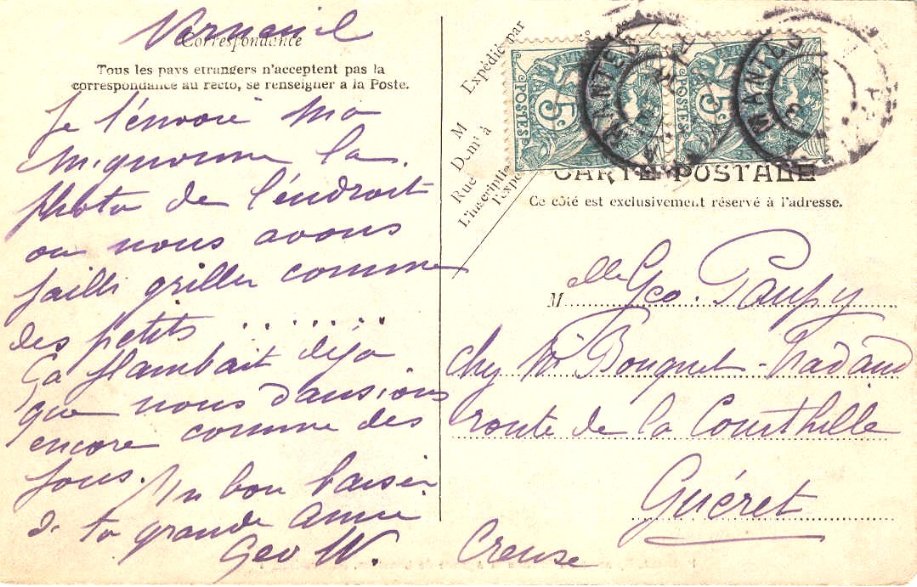 Verneuil
Correspondance
Tous les pays etrangers n'acceptent pas la
correspondance au recto, se renseigner a la Poste.
Je t'envoie ma
mignonne la
photo de l'endroit
ou nous avons
failli griller comme
des petits . . . . . . .
Ça flambait déjà
que nous dansions
encore comme des
fous.
Un bon baiser
de ta grande amie
Geo W.
Expédié par
M
Demt à
Rue
L'inscriptio
l'expé
5c
POSTES
5c
POSTES
CARTE POSTALE
Ce côté est exclusivement réservé à l'adresse.
Melle Geo. Paupy
chez Mr Bouquet-Nadaud
route de la Courthille
Guéret
Creuse